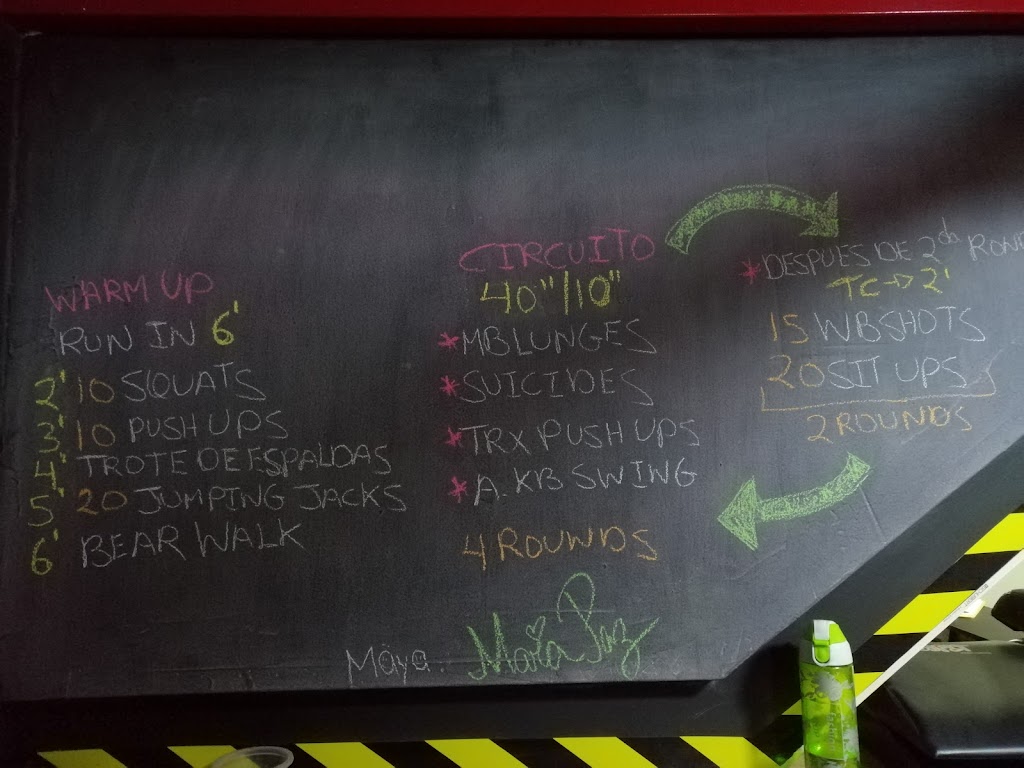 WARM UP
RUN IN 6'
2' 10 SQUATS
3' 10 PUSH UPS
4' TROTE DE ESPALDAS
5' 20 JUMPING JACKS
6' BEAR WALK
CIRCUITO
40"/10"
* MB LUNGES
* SUICIDES
* TRX PUSH UPS
* A. KB SWING
4 ROUNDS
* DESPUES DE 2da ROND
TC → 2'
15 WB SHOTS
20 SIT UPS
2 ROUNDS
Maya.
María Paz